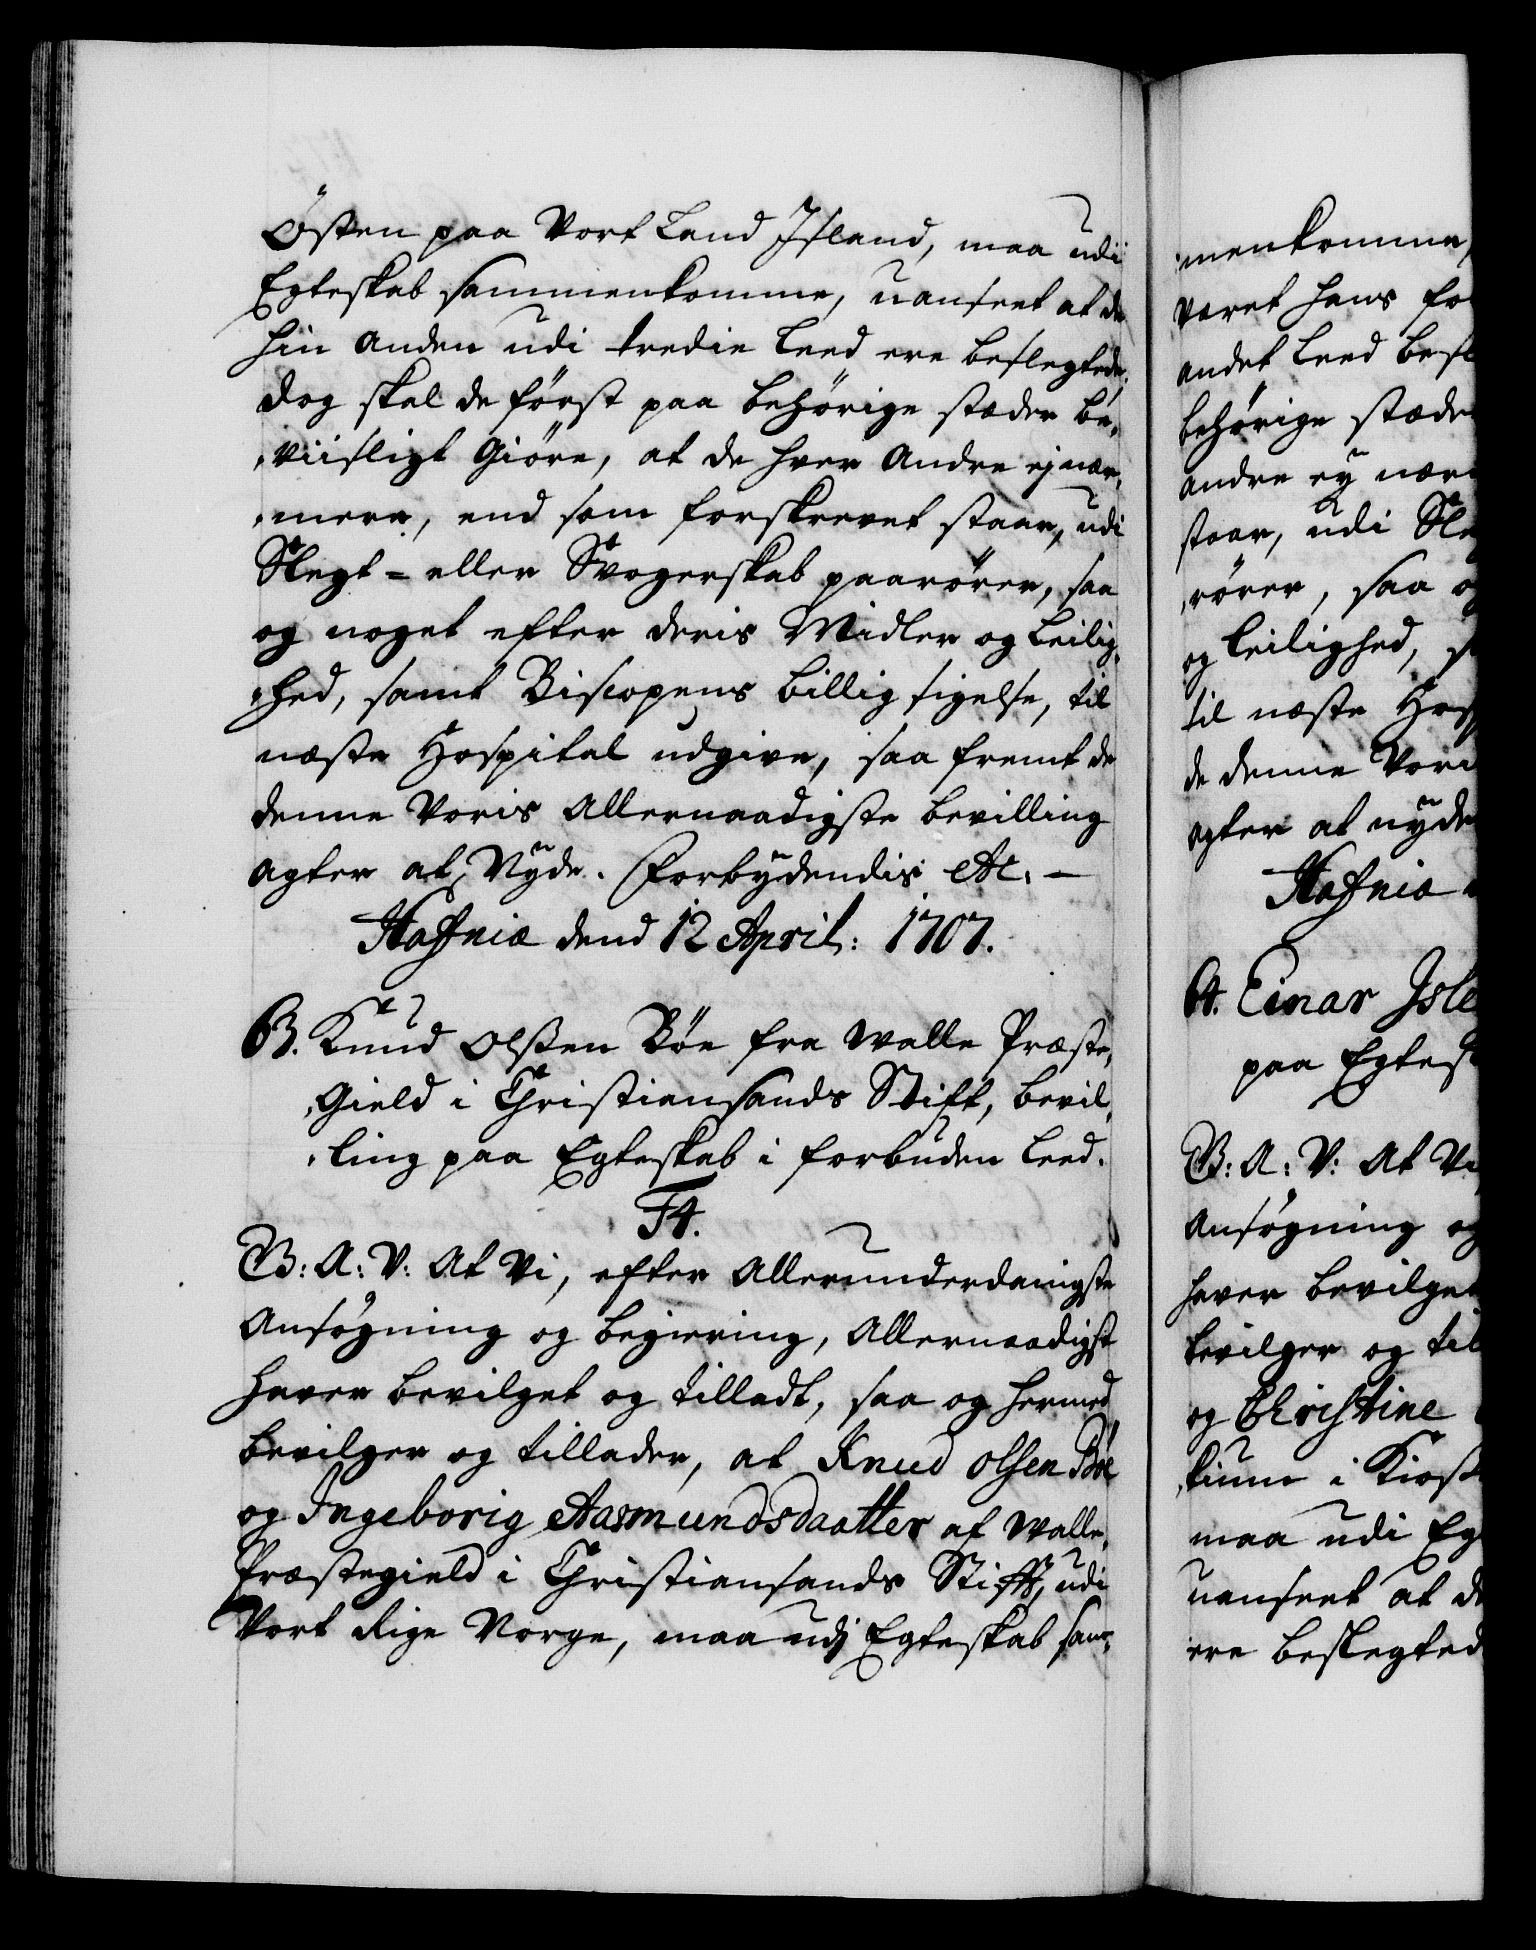 Østen paa Vort Land Jsland, maa udi
Egteskab sammenkomme, uanseet at de
hin anden udi tredie Leed ere beslegtede,
dog skal de først paa behørige stæder be¬
viisligt Giøre, at de hver Andre ej nær¬
mere, end som forskrevet staar, udi
Slegt= eller Svogerskab paarører, saa
og noget efter deris Midler og Leilig¬
hed, samt Biscopens billig sigelse, til
næste Hospital udgive, saa fremt de
denne Voris Allernaadigste bevilling
agter at Nyde. Forbydendis etc. —
Hafniæ dend 12 April: 1707.
B. Knud Olßen Bøe fra Walle Præste¬
Gield i Christiansands Stift, bevil¬
ling paa Egteskab i forbuden Leed.
F4.
G: A: V: At Vi, efter Allerunderdanigste
Ansøgning og begiering, Allernaadigst
haver bevilget og tilladt, saa og hermed
bevilger og tillader, at Knud olsen Bøe
og Ingeborig Aasmundsdaatter af Walle
Præstegield i Christiansands Stifft, udi
Vort Rige Norge, maa udj Egteskab sam¬
menkomme,
været hans for
andet Leed besl
behørige stæde
andre ey nær
staar, udi Sle
rører, saa o
og leilighed, s
til næste Hos
de denne Vori
agter at nyde
Hafniæ
A. Einar Jsle
paa Egtes
G: A: V: At Vi
Ansøgning og
haver bevilget
bevilger og til
og Christine
maa udi Eg
uanseet at de
ere beslegted